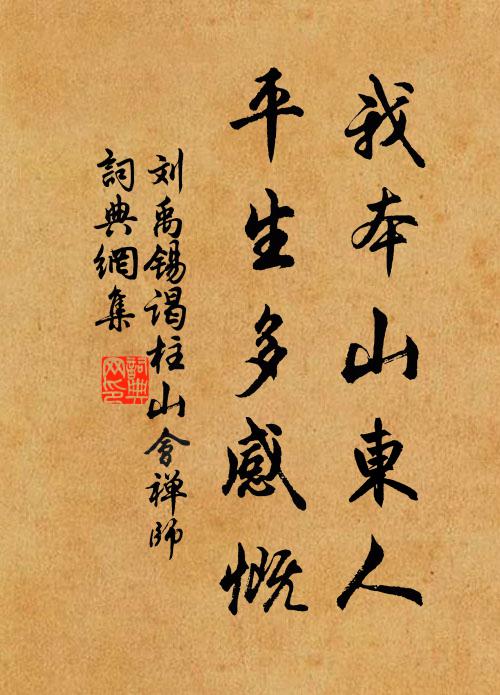 我本山東人
平生多感慨
刘禹锡谒柱山會禅师
詞典網集
詞典
网印